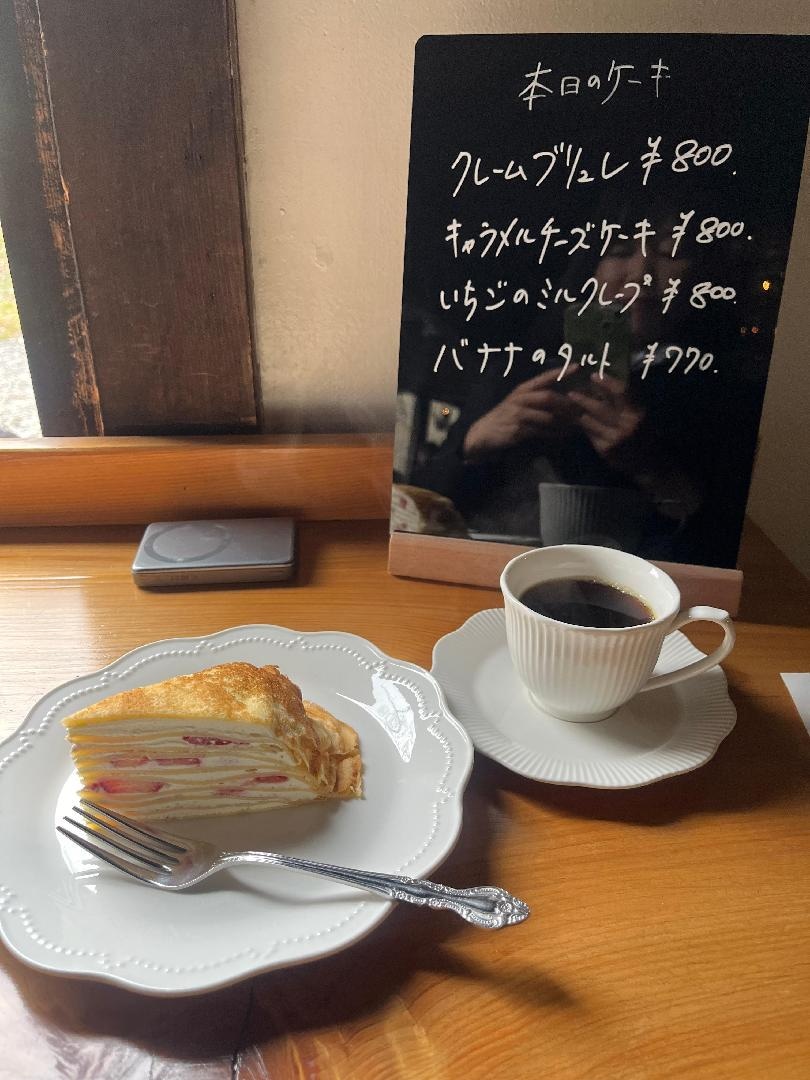 本日のケーキ
クレームブリュレ ¥800.
キャラメルチーズケーキ ¥800.
いちごのミルクレープ ¥800.
バナナのタルト ¥770.